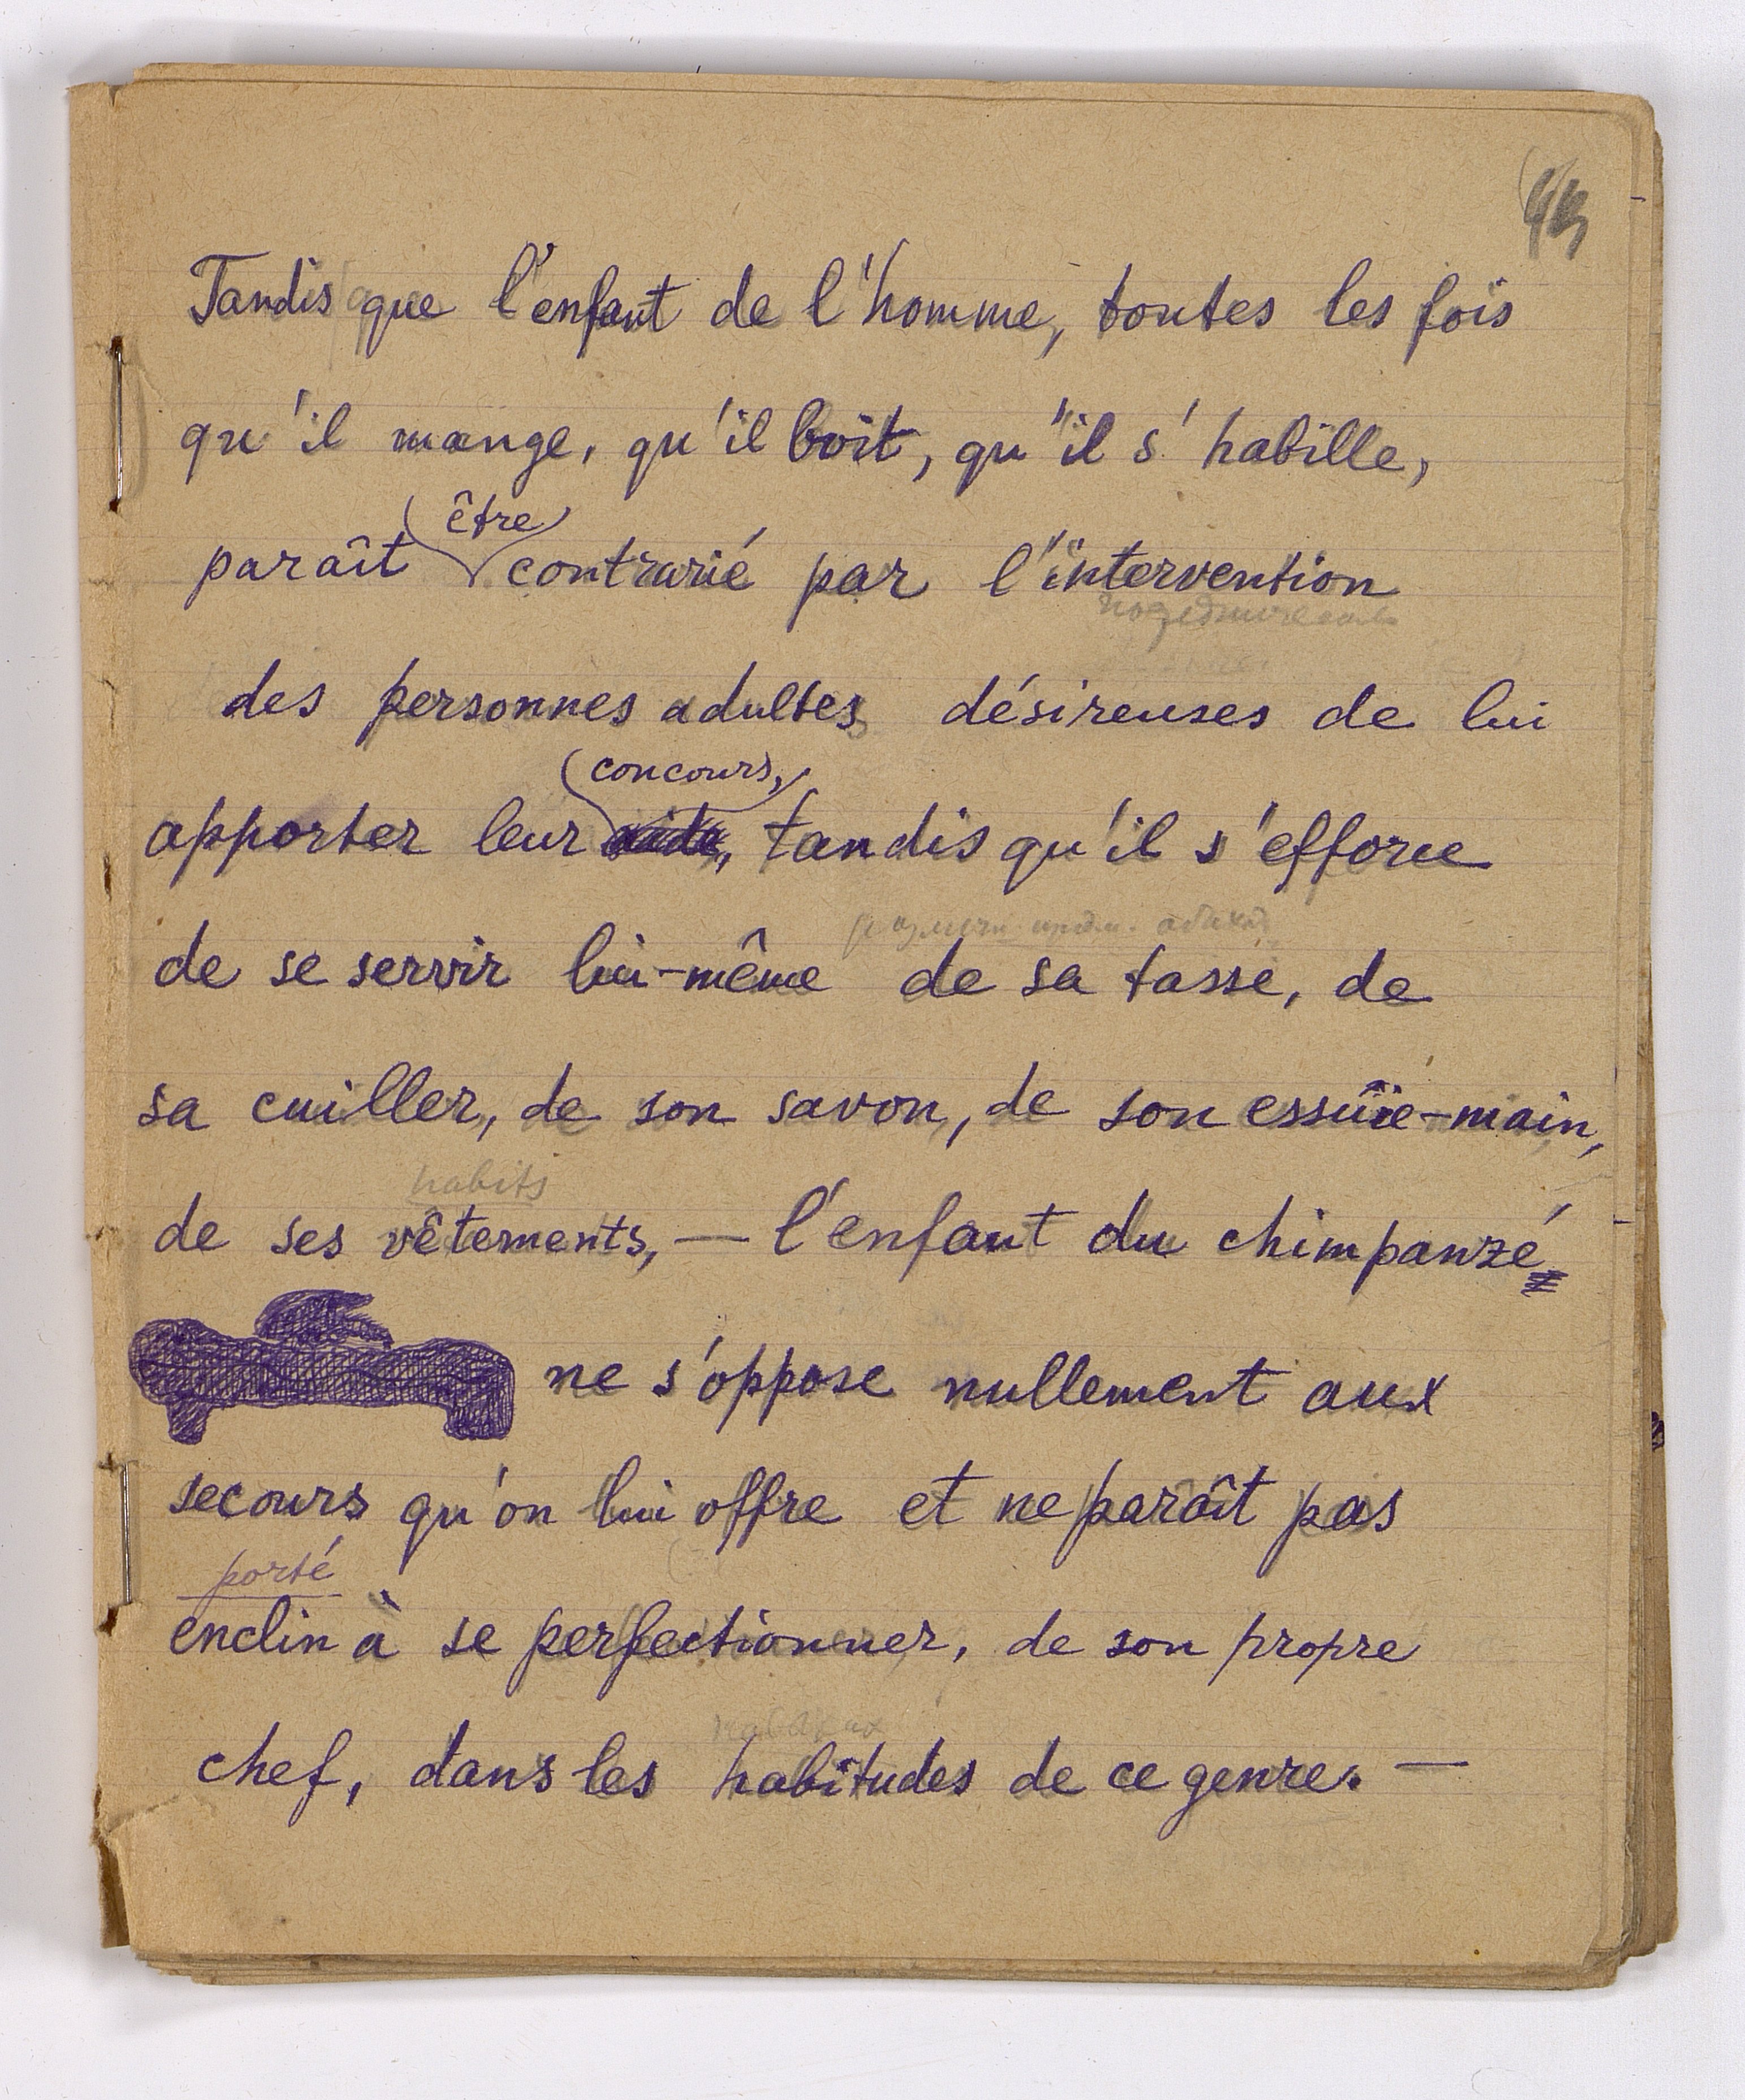 Tandis que l'enfant de l'homme, toutes les fois
qu'il mange, qu'il boit, qu'il s'habille,
être
paraît contrarié par l'intervention
des personnes adultes désireuses de lui
concours,
apporter leur aide, tandis qu'il s'efforce
de se servir lui-même de sa tasse, de
sa cuiller, de son savon, de son essuie-main,
habits
de ses vêtements, — l'enfant du chimpanzé
ne s'oppose nullement aux
secours qu'on lui offre et ne paraît pas
porté
enclin à se perfectionner, de son propre
chef, dans les habitudes de ce genre. —